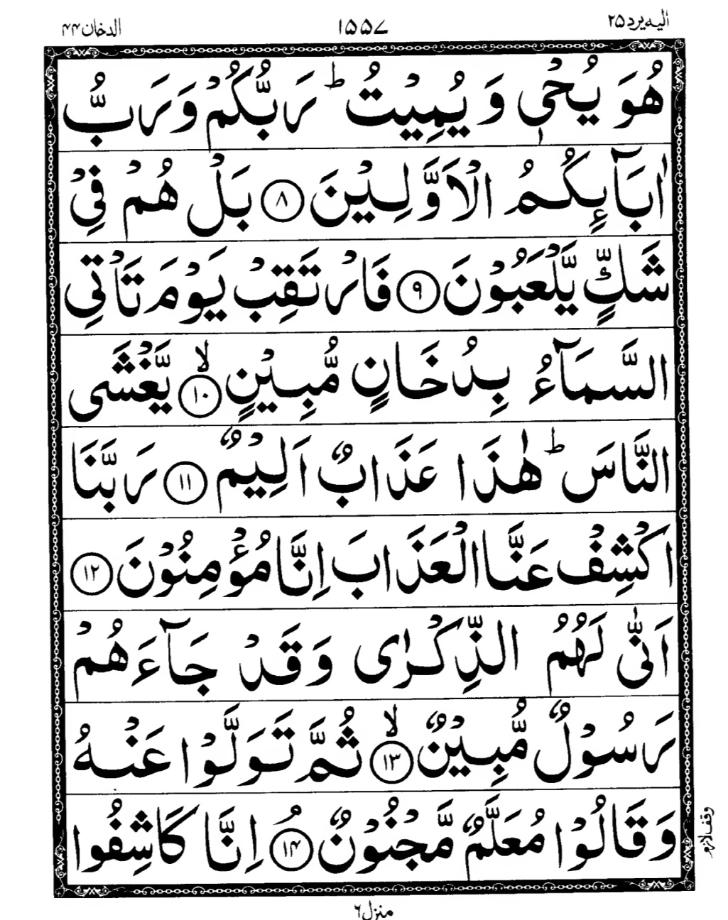 الیه یرد ۲۵
۱۵۵۷
الدخان ۴۴
هُوَ يُحْىٖ وَ يُمِيْتُ ؕ رَبُّكُمْ وَ رَبُّ
اٰبَآىِٕكُمُ الْاَوَّلِيْنَ ۝۸ بَلْ هُمْ فِيْ
شَكٍّ يَّلْعَبُوْنَ ۝۹ فَارْتَقِبْ يَوْمَ تَاْتِي
السَّمَآءُ بِدُخَانٍ مُّبِيْنٍ ۙ۝۱۰ يَّغْشَى
النَّاسَ ؕ هٰذَا عَذَابٌ اَلِيْمٌ ۝۱۱ رَبَّنَا
اكْشِفْ عَنَّا الْعَذَابَ اِنَّا مُؤْمِنُوْنَ ۝۱۲
اَنّٰى لَهُمُ الذِّكْرٰى وَ قَدْ جَآءَهُمْ
رَسُوْلٌ مُّبِيْنٌ ۙ۝۱۳ ثُمَّ تَوَلَّوْا عَنْهُ
وَ قَالُوْا مُعَلَّمٌ مَّجْنُوْنٌ ۘ۝۱۴ اِنَّا كَاشِفُوا
وقف لازم
منزل ۶